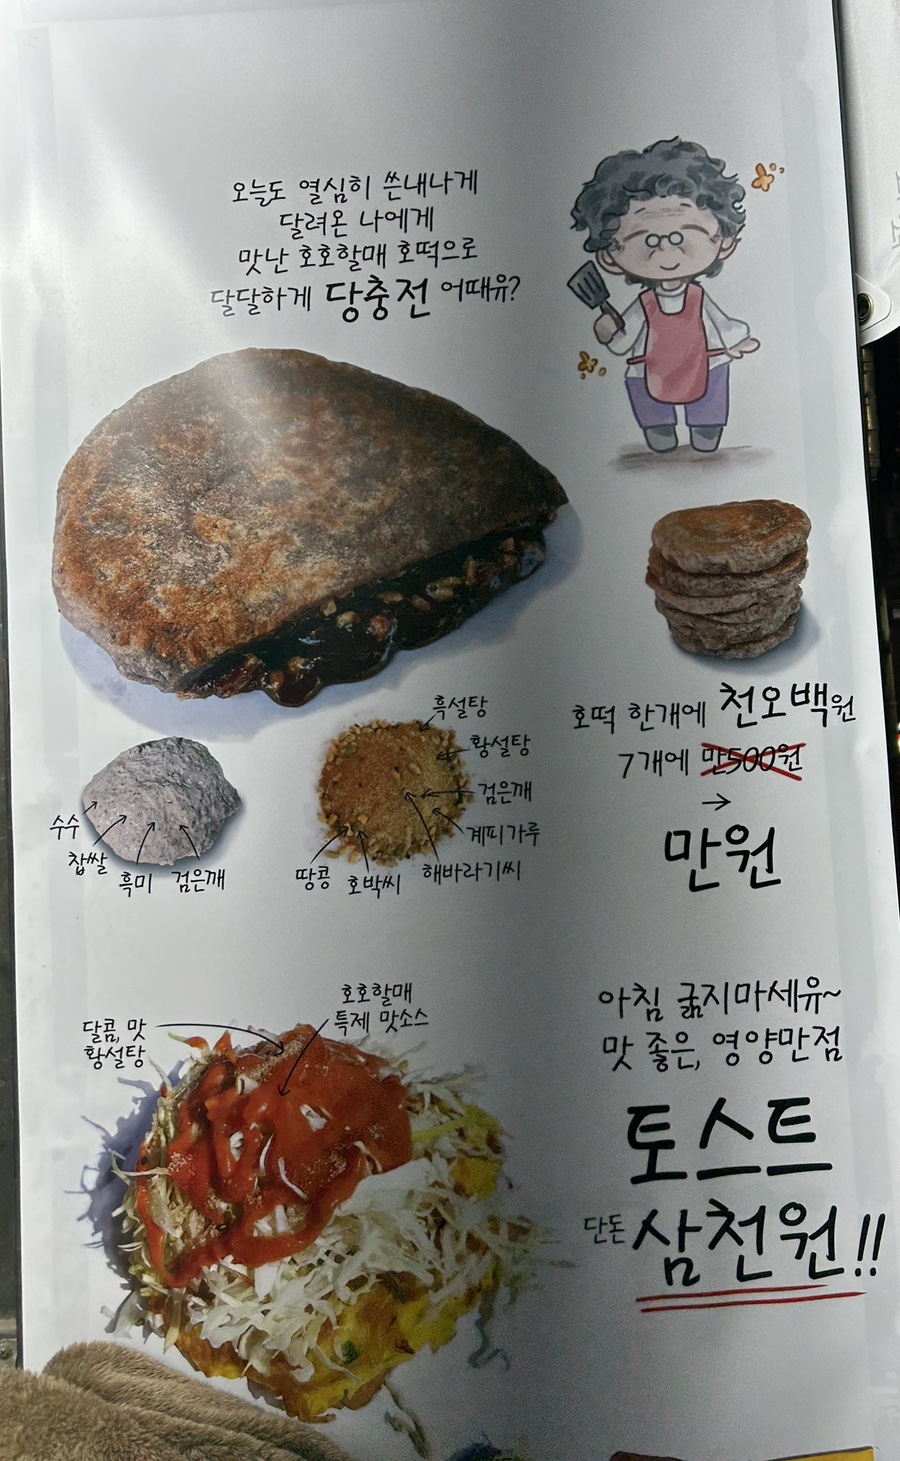 오늘도 열심히 쓴내나게
달려온 나에게
맛난 호호할매 호떡으로
달달하게 당충전 어때유?
흑설탕
황설탕
검은깨
계피가루
해바라기씨
호박씨
땅콩
수수
찹쌀
흑미
검은깨
호떡 한개에 천오백원
7개에 만500원
→
만원
호호할매
특제 맛소스
달콤, 맛
황설탕
아침 굶지마세유~
맛 좋은, 영양만점
토스트
단돈 삼천원!!